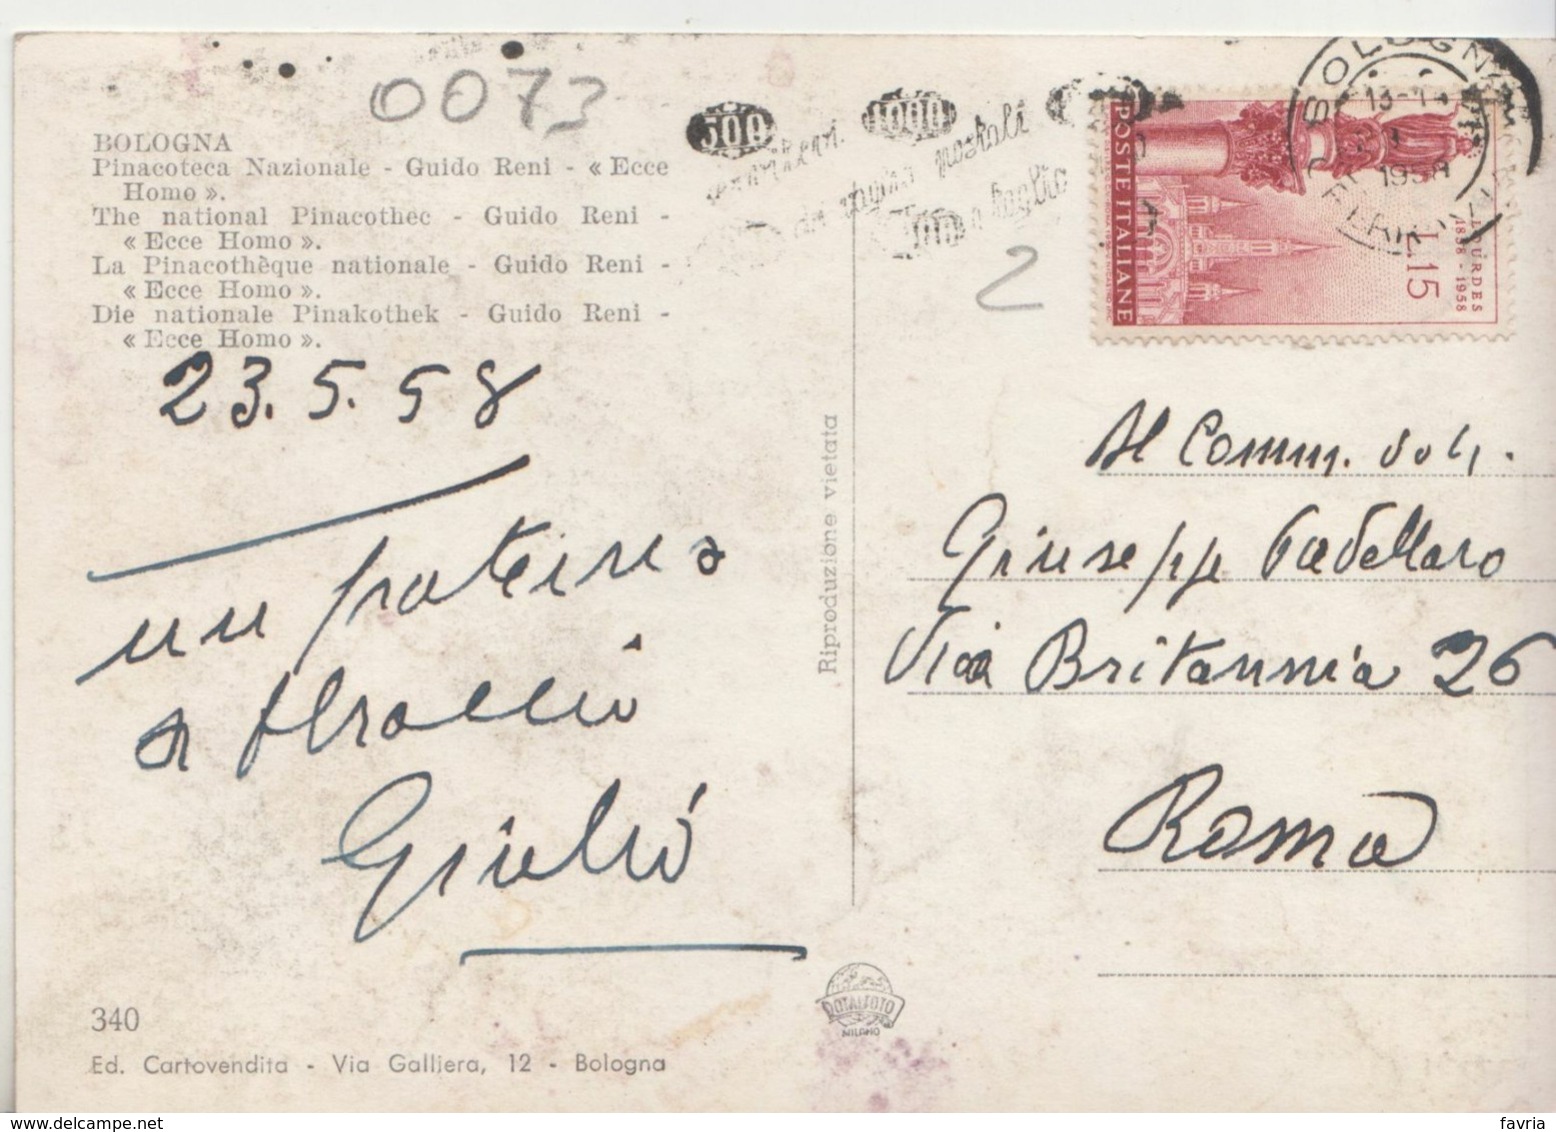 0073
BOLOGNA
Pinacoteca Nazionale - Guido Reni - « Ecce
Homo ».
The national Pinacothec - Guido Reni -
« Ecce Homo ».
La Pinacothèque nationale - Guido Reni -
« Ecce Homo ».
Die nationale Pinakothek - Guido Reni -
« Ecce Homo ».
23.5.58
un paterno
abbraccio
Giulio
340
Ed. Cartovendita - Via Galliera, 12 - Bologna
Riproduzione vietata
ROTALFOTO
MILANO
500
1000
postali
BOLOGNA
1958
POSTE ITALIANE
LOURDES
1858 - 1958
L.15
2
Al Comm.
Giuseppe Padellaro
Via Britannia 26
Roma
favria